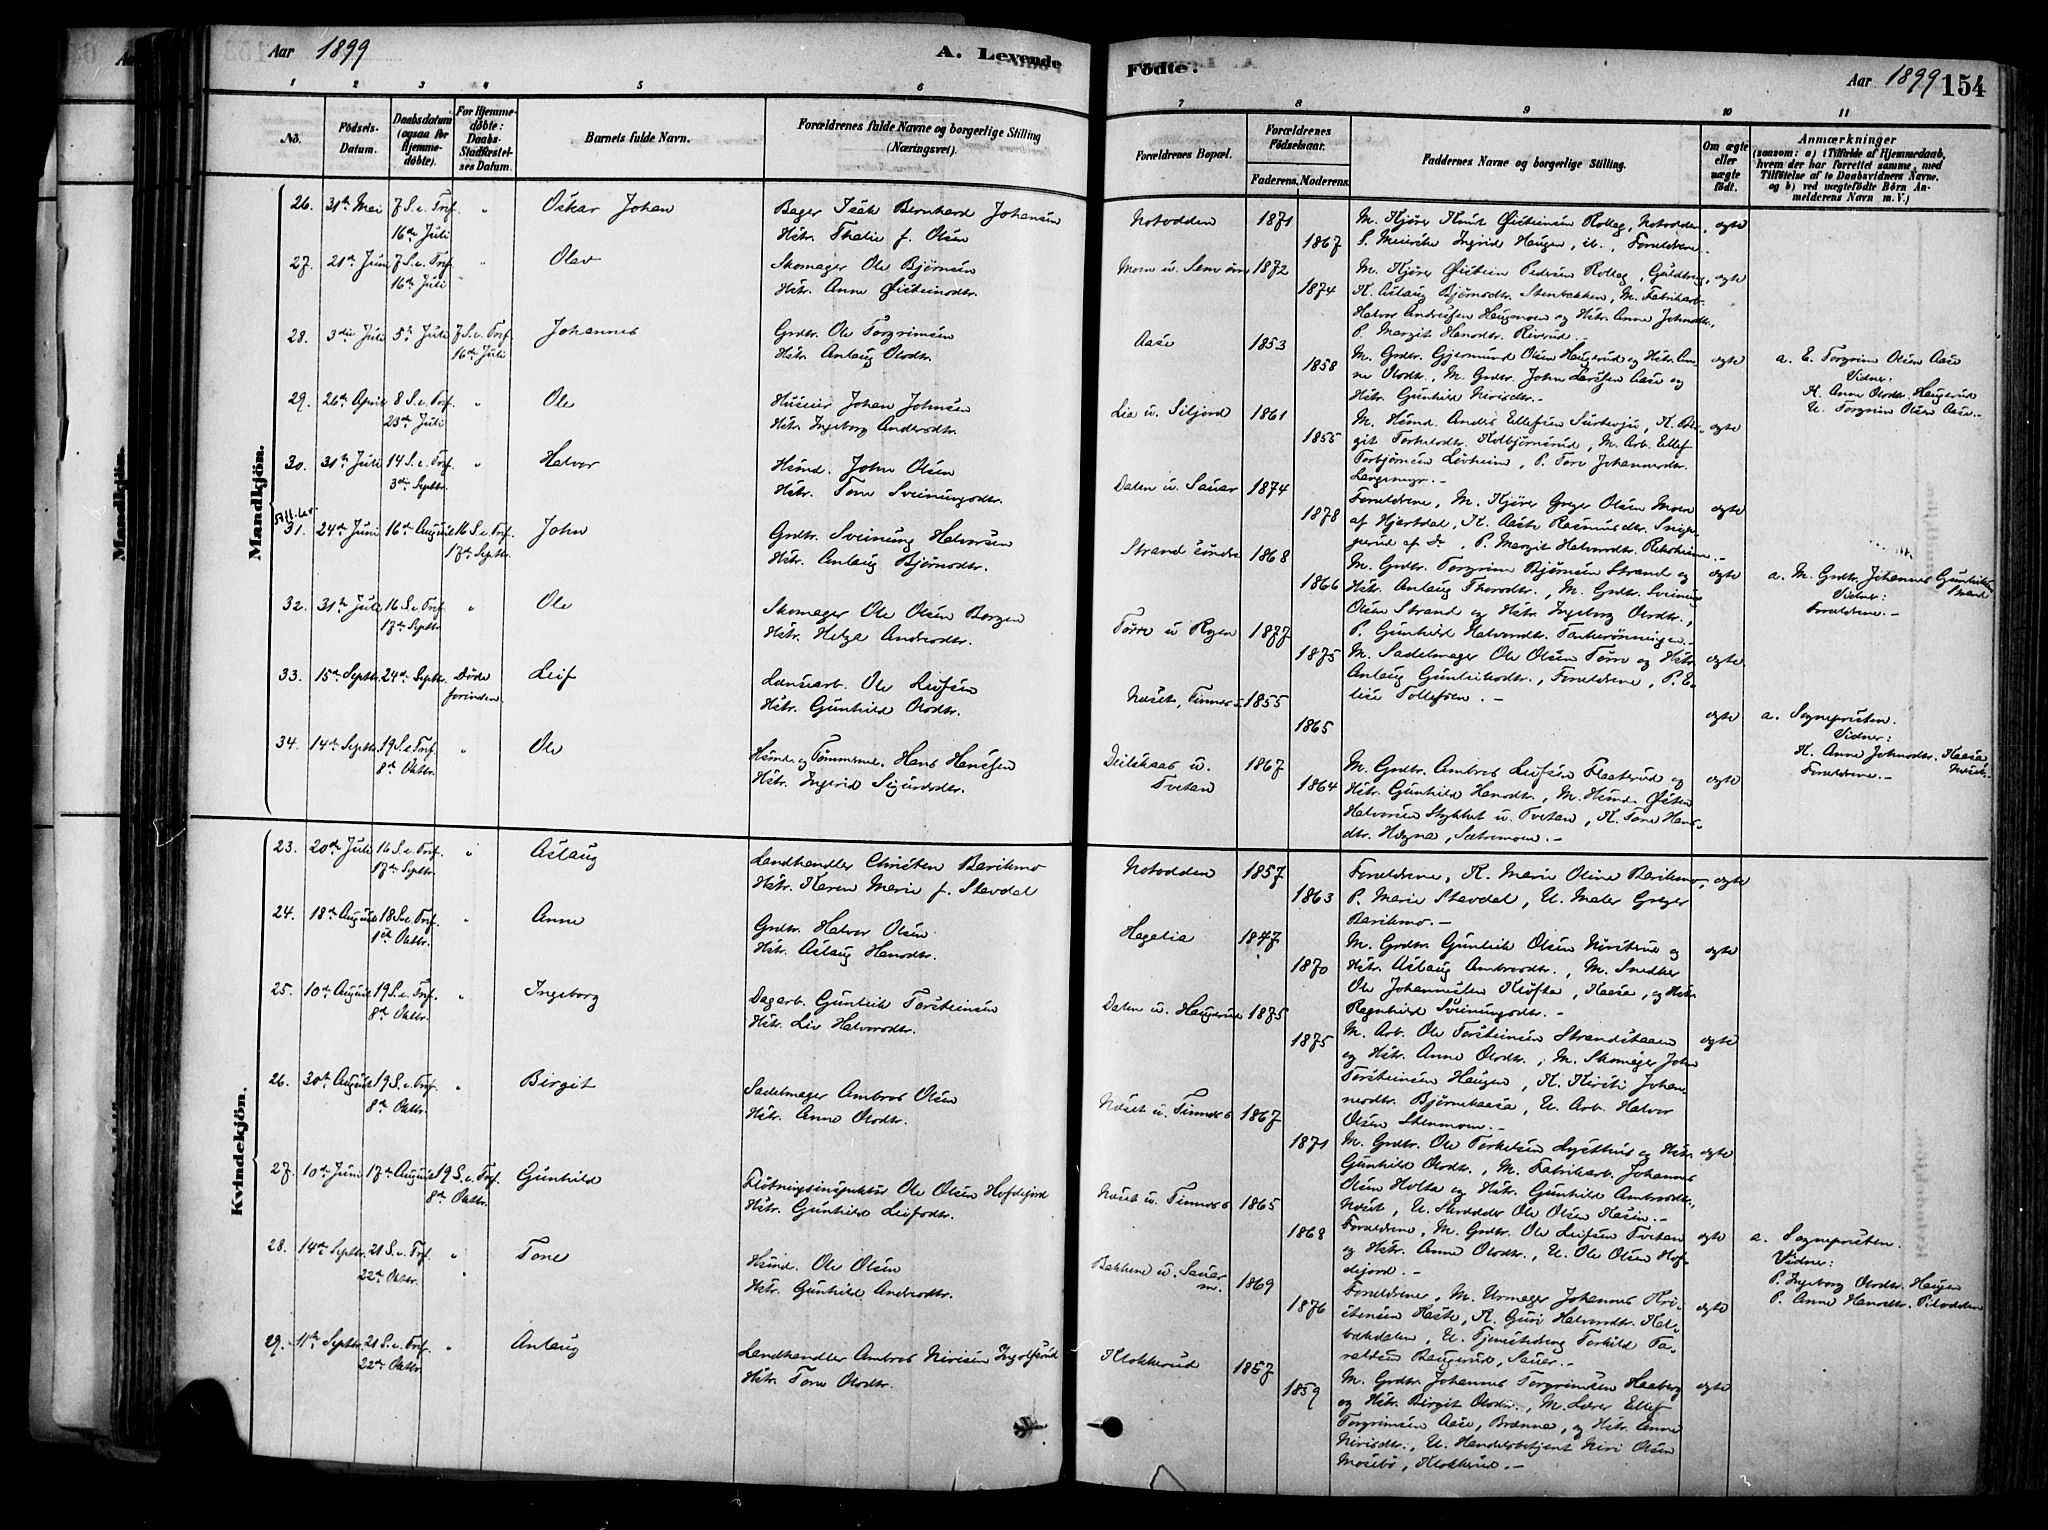 Aar 1899
A. Levende
Fødte.
Aar 1899
154
1 2 3 4 5 6 7 8 9 10 11
No.
Fødsels-Datum.
Daabsdatum (ogsaa for Hjemmedøbte).
For Hjemmedøbte: Daabs-Stadfæstelses Datum.
Barnets fulde Navn.
Forældrenes fulde Navne og borgerlige Stilling (Næringsvei).
Forældrenes Bopæl.
Forældrenes Fødselsaar.
Faderens. Moderens.
Faddernes Navne og borgerlige Stilling.
Om ægte eller uægte født.
Anmærkninger
(saasom: a) i Tilfælde af Hjemmedaab, hvem der har forrettet samme, med Tilføielse af to Daabsvidners Navne. og b) ved uægtefødte Børn Anmelderens Navn m. V.)
Mandkjøn.
26. 31te Mai 7 S. e. Tref. 16de Juli " Oskar Johan
Bager Isak Bernhard Johansen
Hstr. Thalie f. Olsen
Notodden 1871 1867
M. Kjører Knut Øisteinsen Rollag, Notodden,
Ingrid Haugen, ib., Forældrene.
ægte
27. 21de Juni 7 S. e. Tref. 16de Juli " Olav
Skomager Ole Bjørnsen
Hstr. Anne Øisteinsdtr.
1872 1874
M. Kjører Øistein Pedersen Rollag,
K. Aslaug Bjørnsdtr. Stenbakken, M. Fabrikarb.
Halvor Andersen Haugmoen og Hstr. Anne Johnsdtr.,
P. Margit Hansdtr.
ægte
28. 3die Juli 5te Juli 7 S. e. Tref. 16de Juli Johannes
Grdbr. Ole Torgrimsen
Hstr. Anlaug Olsdtr.
Aase 1853 1858
M. Grdbr. Gjermund Olsen Haugerud og Hstr. Anne Olsdtr., M. Grdbr. John Larsen Aase og
Hstr. Gunhild Nirisdtr.
ægte
a. E. Torgrim Olsen Aase
Vidner:
K. Anne Olsdtr. Haugerud
U. Torgrim Olsen Aase.
29. 26de April 8 S. e. Tref. 23de Juli " Ole
Huseier Johan Johnsen
Hstr. Ingeborg Andersdtr.
Lie u. Siljord 1861 1855
M. Hsmd. Anders Ellefsen
Torkelsdtr. Kolbjørnsrud, M. Arb. Ellef
Torbjørnsen Livheim, P. Tore Johannesdtr.
ægte
30. 31te Juli 14 S. e. Tref. 3die Septbr. " Halvor
Hsmd. John Olsen
Hstr. Tone Sveinungsdtr.
Dalen u. Sauar 1874 1878
Forældrene, M. Kjører Greger Olsen Moen
af Hjartdal, K. Aaste Rasmusdtr.
P. Margit Halvorsdtr.
ægte
31. 24de Juni 16de August 16 S. e. Tref. 17de Septbr. John
Grdbr. Sveinung Halvorsen
Hstr. Anlaug Bjørnsdtr.
Strand søndre 1868 1866
M. Grdbr. Torgrim Bjørnsen Strand og
Hstr. Anlaug Thorsdtr., M. Grdbr. Sveinung
Olsen Strand og Hstr. Ingeborg Olsdtr.,
P. Gunhild Halvorsdtr.
ægte
a. M. Grdbr. Johannes
Vidner:
Forældrene.
32. 31te Juli 16 S. e. Tref. 17de Septbr. " Ole
Skomager Ole Olsen Borgen
Hstr. Helga Andersdtr.
Tørre u. Ryen 1877 1875
M. Sadelmager Ole Olsen Tørre og Hstr.
Anlaug Gunleiksdtr., Forældrene, P. Elise Tollefsen.
ægte
33. 15de Septbr. 24de Septbr. Døde forinden. Leif
Løsearb. Ole Leifsen
Hstr. Gunhild Olsdtr.
Næset, Tinnes 1855 1865
ægte
a. Sognepresten.
Vidner:
K. Anne Johnsdtr. Kaasa
Forældrene.
34. 14de Septbr. 19 S. e. Tref. 8de Oktbr. " Ole
Hsmd. og Tømmerm. Hans Hansen
Hstr. Ingerid Sigurdsdtr.
Deilskaas u. Tveten 1867 1864
M. Grdbr. Ambros Leifsen Flaaterud og
Hstr. Gunhild Hansdtr., M. Hsmd. Østen
Halvorsen Stykket u. Tveten, K. Tone Hansdtr. Høgna, Sætremoen.
ægte
Kvindekjøn.
23. 20de Juli 16 S. e. Tref. 17de Septbr. " Aslaug
Landhandler Christen Barikmo
Hstr. Karen Marie f. Stavdal
Notodden 1857 1863
Forældrene, K. Marie Oline Barikmo,
P. Marie Stavdal, U. Maler Greger
Barikmo.
ægte
24. 18de August 18 S. e. Tref. 1ste Oktbr. " Anne
Grdbr. Halvor Olsen
Hstr. Aslaug Hansdtr.
Hagalia 1847 1870
M. Grdbr. Gunleik Olsen Nirstrud og
Hstr. Aslaug Ambrosdtr., M. Snedker
Ole Johannesen Kløfta, Kaasa, og Hstr.
Ragnhild Sveinungsdtr.
ægte
25. 10de August 19 S. e. Tref. 8de Oktbr. " Ingeborg
Dagarb. Gunleik Torsteinsen
Hstr. Liv Halvorsdtr.
Dalen u. Haugerud 1875 1875
M. Arb. Ole Torsteinsen
og Hstr. Anne Olsdtr., M. Skomager John
Torsteinsen Haugen, K. Kirsti Johannesdtr. Bjørnekaasa, U. Arb. Halvor
Olsen Stenmoen.
ægte
26. 30te August 19 S. e. Tref. 8de Oktbr. " Birgit
Sadelmager Ambros Olsen
Hstr. Anne Olsdtr.
Næset u. Tinnes 1867 1871
M. Grdbr. Ole Torkelsen Lysthus og Hstr.
Gunhild Olsdtr., M. Fabrikarb. Johannes
Olsen Holta og Hstr. Gunhild Ambrosdtr.,
Næset, U. Skredder Ole Olsen Kasin.
ægte
27. 10de Juni 17de August 19 S. e. Tref. 8de Oktbr. Gunhild
Fløtningsinspektør Ole Olsen Hofdejord
Hstr. Gunhild Leifsdtr.
Næset u. Tinnes 1865 1868
Forældrene, M. Grdbr. Ole Leifsen Tveten
og Hstr. Anne Olsdtr., U. Ole Olsen Hofdejord.
ægte
a. Sognepresten.
Vidner:
P. Ingeborg Olsdtr. Haugen
P. Anne Hansdtr. Pilodden
28. 14de Septbr. 21 S. e. Tref. 22de Oktbr. " Tone
Hsmd. Ole Olsen
Hstr. Gunhild Andersdtr.
Bakkene u. Sauar m. 1869 1876
Forældrene, M. Urmager Johannes Kristensen K. Guri Halvorsdtr.
U. Tjenestedreng Torkild Taraldsen Baugerud, Sauar.
ægte
29. 11te Septbr. 21 S. e. Tref. 22de Oktbr. " Anlaug
Landhandler Ambros Nirisen Ingolfsrud
Hstr. Tone Olsdtr.
Klokkerud 1857 1859
M. Grdbr. Johannes Torgrimsen Haaberg
og Hstr. Birgit Olsdtr., M. Lærer Ellef
Torgrimsen Aase, Brænna, og Hstr. Anne
Nirisdtr., U. Handelsbetjent Niri Olsen
Mosebø, Klokkerud.
ægte